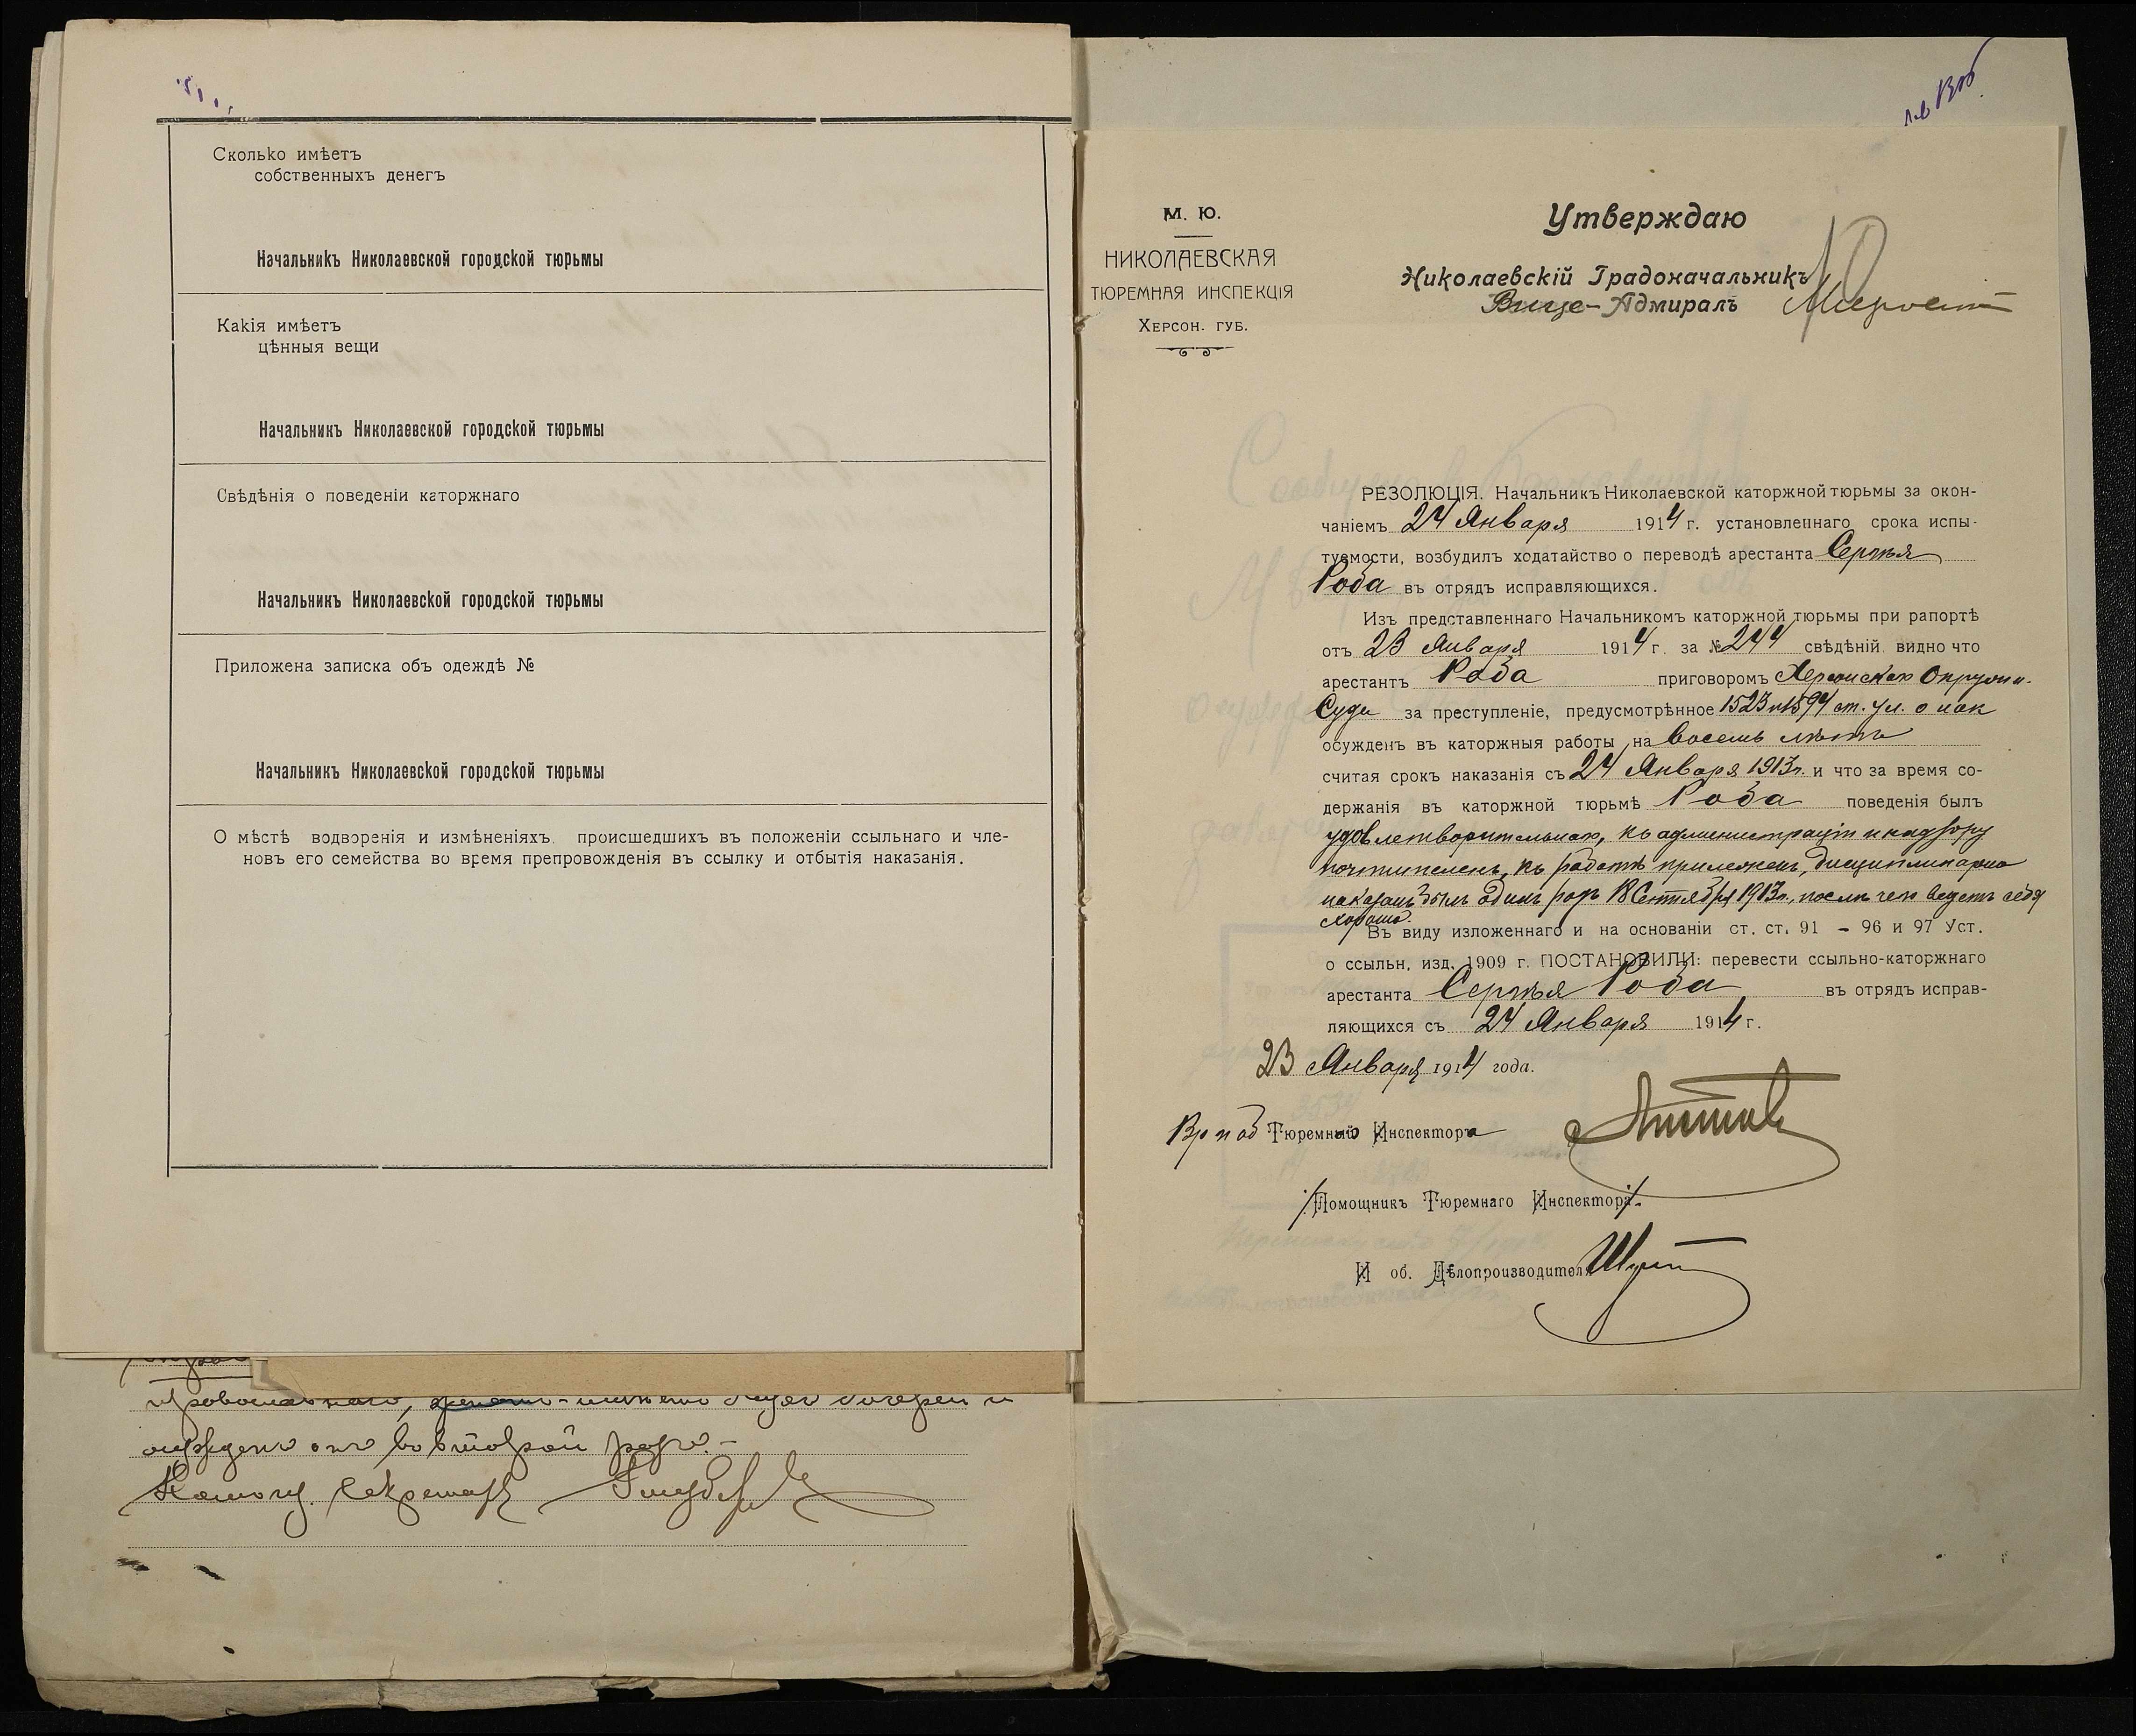 Сколько имѣетъ
собственныхъ денегъ
Начальникъ Николаевской городской тюрьмы
Какія имѣетъ
цѣнныя вещи
Начальникъ Николаевской городской тюрьмы
Свѣдѣнія о поведеніи каторжнаго
Начальникъ Николаевской городской тюрьмы
Приложена записка объ одеждѣ №
Начальникъ Николаевской городской тюрьмы
О мѣстѣ водворенія и измѣненіяхъ, происшедшихъ въ положеніи ссыльнаго и чле-
новъ его семейства во время препровожденія въ ссылку и отбытія наказанія.
осужденъ онъ во второй разъ.-
Помощ. Секретаря
М. Ю.
НИКОЛАЕВСКАЯ
ТЮРЕМНАЯ ИНСПЕКЦІЯ
Херсон. губ.
Утверждаю
Николаевскій Градоначальникъ
Вице-Адмиралъ
РЕЗОЛЮЦІЯ. Начальникъ Николаевской каторжной тюрьмы за окон-
чаніемъ 24 Января 1914 г. установленнаго срока испы-
туемости, возбудилъ ходатайство о переводѣ арестанта Сергѣя
Роба въ отрядъ исправляющихся.
Изъ представленнаго Начальникомъ каторжной тюрьмы при рапортѣ
отъ 23 Января 1914 г. за № 244 свѣдѣній видно что
арестантъ Роба приговоромъ Херсонскаго Окружн.
Суда за преступленіе, предусмотрѣнное 1523 и 1594 ст. Ул. о нак
осужденъ въ каторжныя работы на восемь лѣтъ
считая срокъ наказанія съ 24 Января 1913 г. и что за время со-
держанія въ каторжной тюрьмѣ Роба поведенія былъ
удовлетворительнаго, къ администраціи и надзору
почтителенъ, къ работѣ прилеженъ, дисциплинарно
наказанъ былъ одинъ разъ 18 Сентября 1913 г., послѣ чего ведетъ себя
хорошо.
Въ виду изложеннаго и на основаніи ст. ст. 91 - 96 и 97 Уст.
о ссыльн. изд. 1909 г. ПОСТАНОВИЛИ: перевести ссыльно-каторжнаго
арестанта Сергѣя Роба въ отрядъ исправ-
ляющихся съ 24 Января 1914 г.
23 Января 1914 года.
Вр и об Тюремнаго Инспектора
/Помощникъ Тюремнаго Инспектора/.
И об. Дѣлопроизводителя